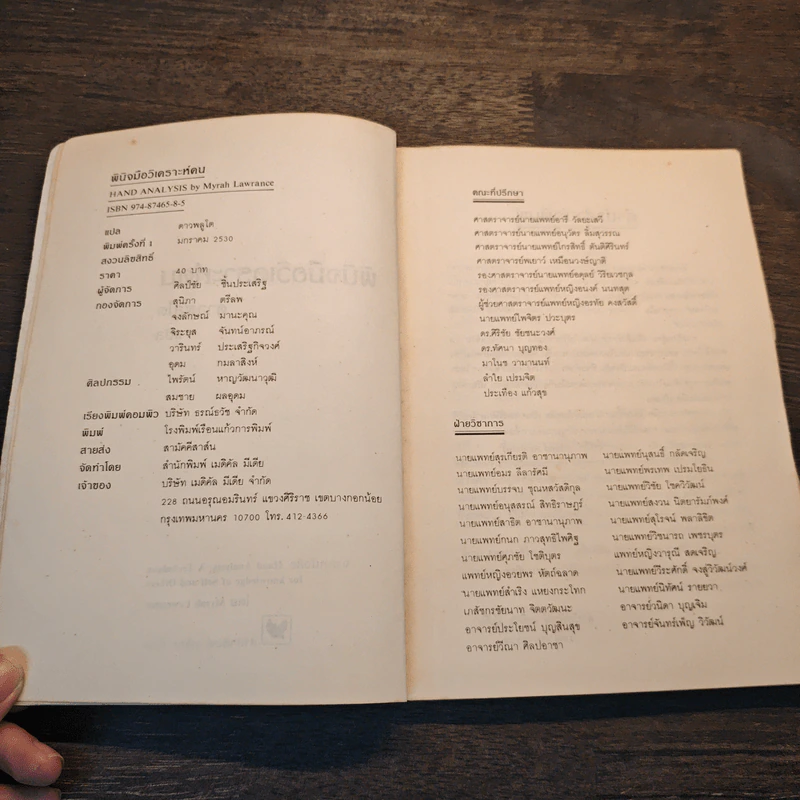 พินิจมือวิเคราะห์คน
HAND ANALYSIS by Myrah Lawrance
ISBN 974-87465-8-5
แปล ดาวพลูโต
พิมพ์ครั้งที่ 1 มกราคม 2530
สงวนลิขสิทธิ์
ราคา 40 บาท
ผู้จัดการ ศิลป์ชัย ชื่นประเสริฐ
กองจัดการ สุนิภา ตรีลพ
จงลักษณ์ มานะคุณ
จิระยุส จันทน์อาภรณ์
วารินทร์ ประเสริฐกิจวงศ์
อุดม กมลาสิงห์
ศิลปกรรม ไพรัตน์ หาญวัฒนาวุฒิ
สมชาย ผลอุดม
เรียงพิมพ์คอมพิว บริษัท ธรณ์ธวัช จำกัด
พิมพ์ โรงพิมพ์เรือนแก้วการพิมพ์
สายส่ง สามัคคีสาส์น
จัดทำโดย สำนักพิมพ์ เมดิคัล มีเดีย
เจ้าของ บริษัท เมดิคัล มีเดีย จำกัด
228 ถนนอรุณอมรินทร์ แขวงศิริราช เขตบางกอกน้อย
กรุงเทพมหานคร 10700 โทร. 412-4366
คณะที่ปรึกษา
ศาสตราจารย์นายแพทย์อารี วัลยะเสวี
ศาสตราจารย์นายแพทย์อนุวัตร ลิ้มสุวรรณ
ศาสตราจารย์นายแพทย์ไกรสิทธิ์ ตันติศิรินทร์
ศาสตราจารย์พเยาว์ เหมือนวงษ์ญาติ
รองศาสตราจารย์นายแพทย์อดุลย์ วิริยเวชกุล
รองศาสตราจารย์แพทย์หญิงอนงค์ นนทสุต
ผู้ช่วยศาสตราจารย์แพทย์หญิงอรทัย คงสวัสดิ์
นายแพทย์ไพจิตร ปวะบุตร
ดร.ศิริชัย ชัยชนะวงศ์
ดร.ทัศนา บุญทอง
มาโนช วามานนท์
ลำไย เปรมจิต
ประเทือง แก้วสุข
ฝ่ายวิชาการ
นายแพทย์สุรเกียรติ อาชานานุภาพ นายแพทย์นุสนธิ์ กลัดเจริญ
นายแพทย์อมร ลีลารัศมี นายแพทย์พรเทพ เปรมโยธิน
นายแพทย์บรรจบ ชุณหสวัสดิกุล นายแพทย์วิชัย โชควิวัฒน์
นายแพทย์อนุสสรณ์ สิทธิราษฎร์ นายแพทย์สงวน นิตยารัมภ์พงศ์
นายแพทย์สาธิต อาชานานุภาพ นายแพทย์สุโรจน์ พลาลิขิต
นายแพทย์กนก ภาวสุทธิไพศิฐ นายแพทย์วิชนารถ เพชรบุตร
นายแพทย์ศุภชัย โชติบุตร แพทย์หญิงวารุณี สดเจริญ
แพทย์หญิงอวยพร หัตถ์ฉลาด นายแพทย์วีระศักดิ์ จงสู่วิวัฒน์วงศ์
นายแพทย์สำเริง แหยงกระโทก นายแพทย์นิทัศน์ รายยวา
เภสัชกรชัยนาท จิตตวัฒนะ อาจารย์วนิดา บุญเจิม
อาจารย์ประโยชน์ บุญสินสุข อาจารย์จันทร์เพ็ญ วิวัฒน์
อาจารย์วีณา ศิลปอาชา